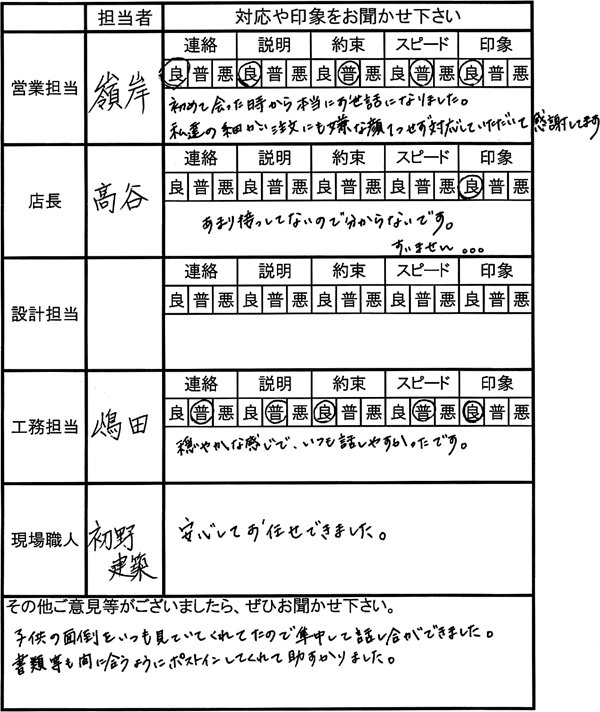 担当者 対応や印象をお聞かせ下さい
営業担当 嶺岸
連絡 説明 約束 スピード 印象
良 普 悪 良 普 悪 良 普 悪 良 普 悪 良 普 悪
初めて会った時から本当にお世話になりました。
私達の細かい注文にも嫌な顔1つせず対応していただいて感謝してます
店長 高谷
連絡 説明 約束 スピード 印象
良 普 悪 良 普 悪 良 普 悪 良 普 悪 良 普 悪
あまり待ってないので分からないです。
すいません...
設計担当
連絡 説明 約束 スピード 印象
良 普 悪 良 普 悪 良 普 悪 良 普 悪 良 普 悪
工務担当 嶋田
連絡 説明 約束 スピード 印象
良 普 悪 良 普 悪 良 普 悪 良 普 悪 良 普 悪
穏やかな感じで、いつも話しやすかったです。
現場職人 初野
建築
安心してお任せできました。
その他ご意見等がございましたら、ぜひお聞かせ下さい。
子供の面倒をいつも見ていてくれてたので集中して話し合ができました。
書類等も間に合うようにポストインしてくれて助すかりました。